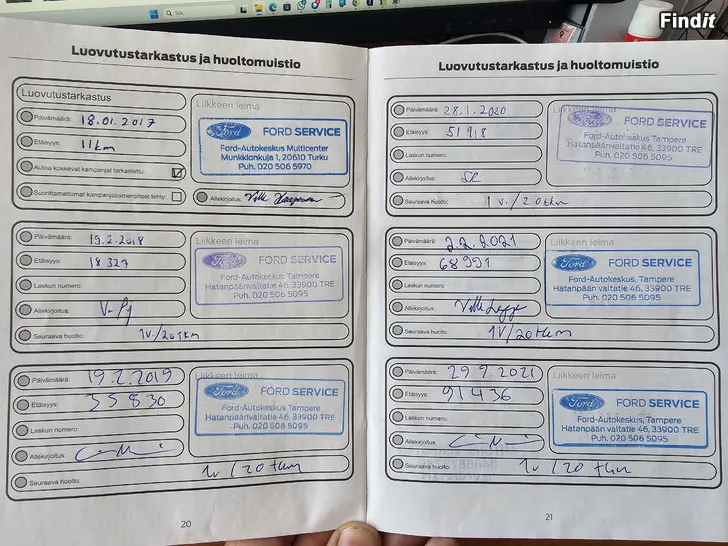 Findit
Luovutustarkastus ja huoltomuistio
Luovutustarkastus
Päivämäärä: 18.01.2017
Etäisyys: 11km
Autoa koskevat kampanjat tarkastettu:
Suorittamattomat kampanjatoimenpiteet tehty:
Liikkeen leima
Ford FORD SERVICE
Ford-Autokeskus Multicenter
Munkkionkuja 1, 20610 Turku
Puh. 020 506 5970
Allekirjoitus:
Päivämäärä: 19.2.2018
Etäisyys: 18 327
Laskun numero:
Allekirjoitus:
Seuraava huolto: 1v/20tkm
Liikkeen leima
Ford FORD SERVICE
Ford-Autokeskus Tampere
Hatanpään valtatie 46, 33900 TRE
Puh. 020 506 5095
Päivämäärä: 19.2.2019
Etäisyys: 35830
Laskun numero:
Allekirjoitus:
Seuraava huolto: 1v/20 tkm
Liikkeen leima
Ford FORD SERVICE
Ford-Autokeskus Tampere
Hatanpään valtatie 46, 33900 TRE
Puh. 020 506 5095
20
Luovutustarkastus ja huoltomuistio
Päivämäärä: 28.1.2020
Etäisyys: 51918
Laskun numero:
Allekirjoitus:
Seuraava huolto: 1v./20tkm
Liikkeen leima
Ford FORD SERVICE
Ford-Autokeskus Tampere
Hatanpäänvaltatie 46, 33900 TRE
Puh. 020 506 5095
Päivämäärä: 2.2.2021
Etäisyys: 68991
Laskun numero:
Allekirjoitus:
Seuraava huolto: 1V/20tkm
Liikkeen leima
Ford FORD SERVICE
Ford-Autokeskus, Tampere
Hatanpään valtatie 46, 33900 TRE
Puh. 020 506 5095
Päivämäärä: 29.9.2021
Etäisyys: 91436
Laskun numero:
Allekirjoitus:
Seuraava huolto: 1v/20 tkm
Liikkeen leima
Ford FORD SERVICE
Ford-Autokeskus, Tampere
Hatanpään valtatie 46, 33900 TRE
Puh. 020 506 5095
21